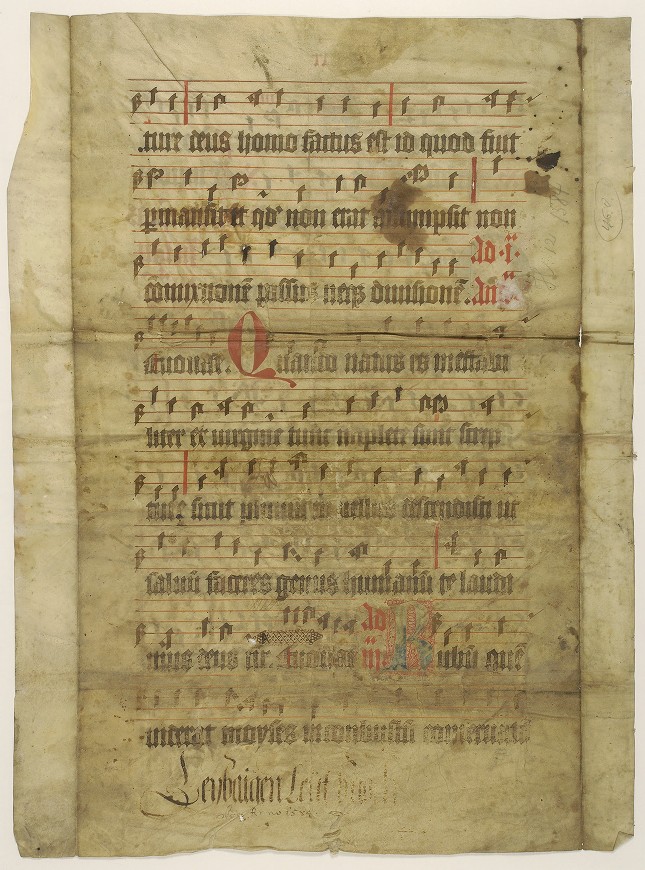 ture deus homo factus est id quod fuit
ꝑmansit et qd' non erat assumpsit non
comixtionē passus neqꝫ diuisionē. Ad .ī.
Añ.
euouae. Quando natus es ineffabi
liter ex uirgine tunc implete sunt scrip
ture sicut pluuia in uellus descendisti ut
saluū faceres genus humanū te laudā
mus deus nr. Euouae Ad Rubū quē
uiderat moyses inconbustū